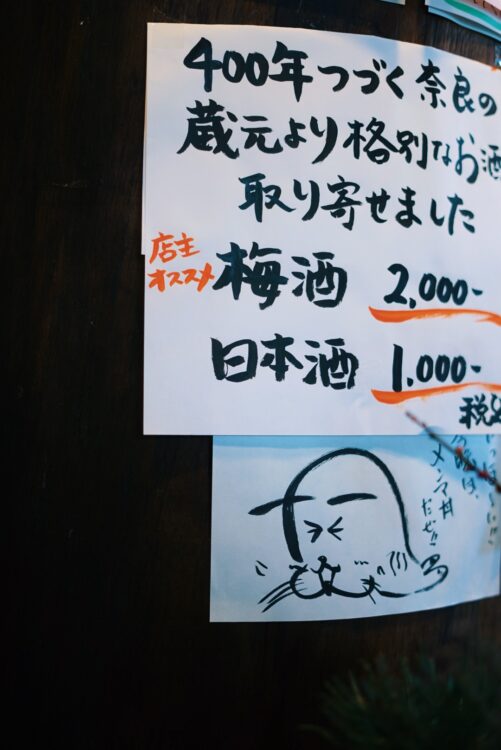 400年つづく奈良の
蔵元より格別なお酒
取り寄せました
店主
オススメ
梅酒 2,000-
日本酒 1.000-
税込
メンマ丼
だぜ!!